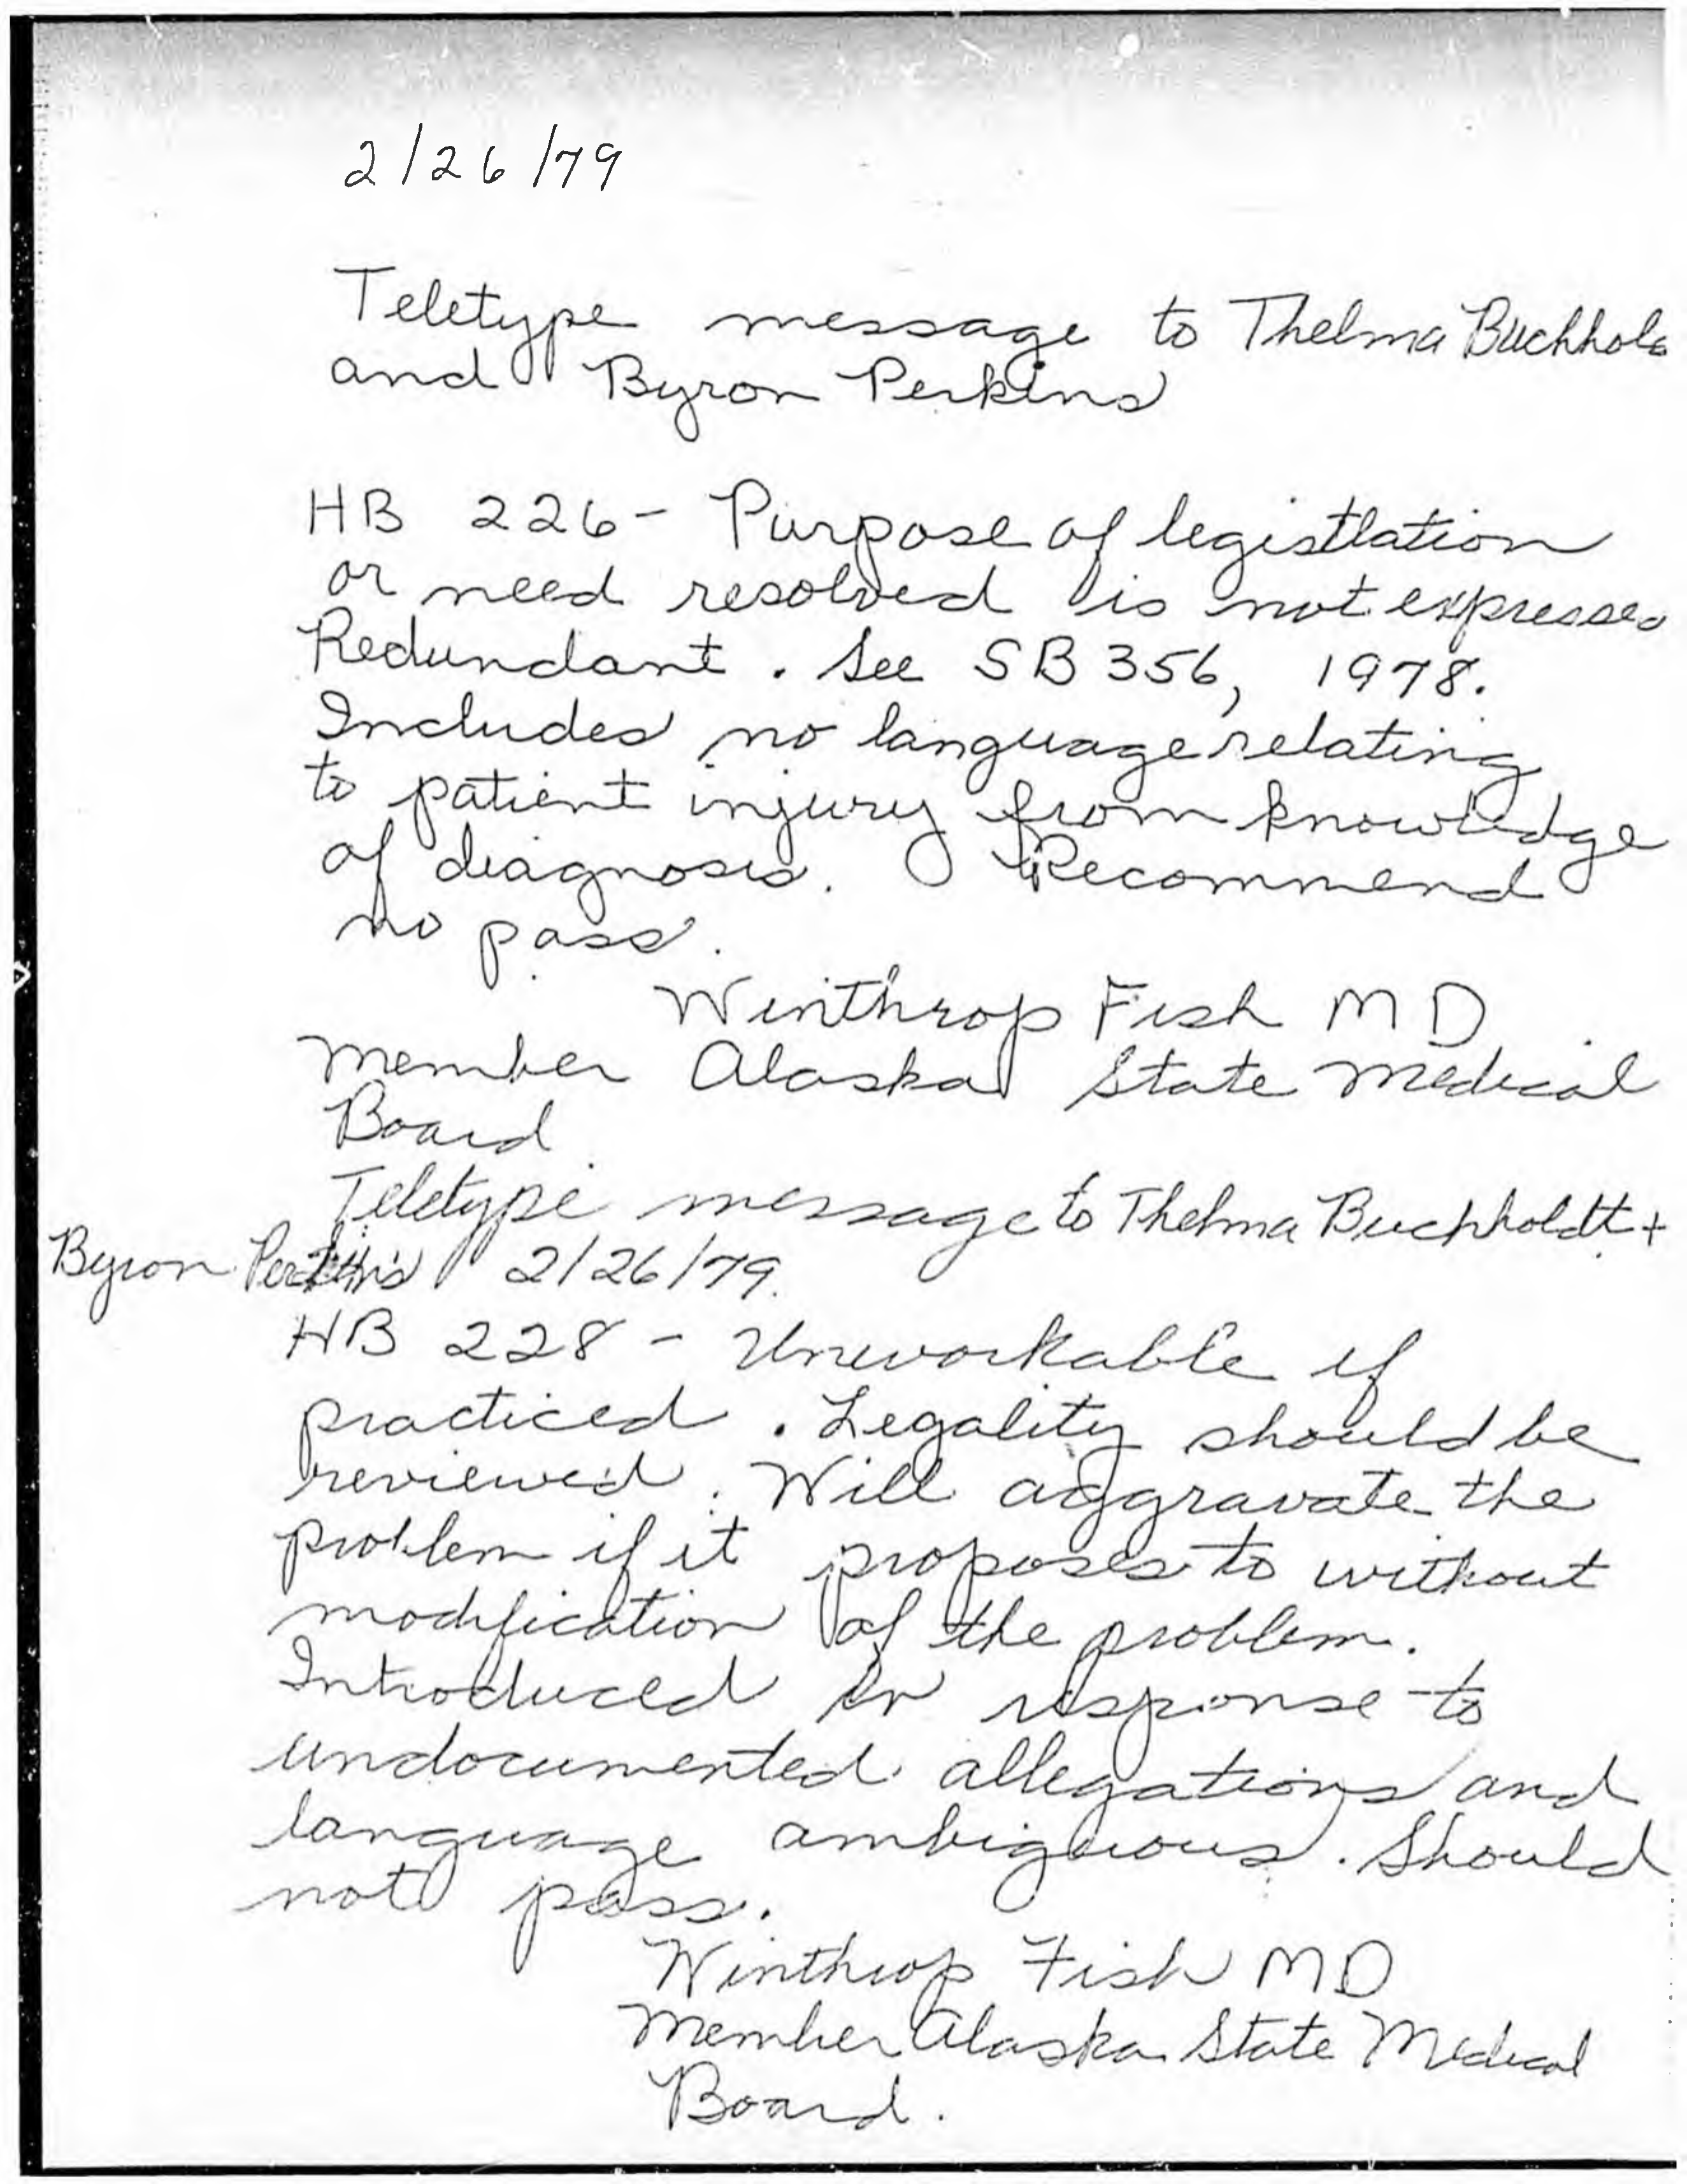 2/26/79
Teletype message to Thelma Buchhol
and Byron Perkins
HB 226- Purpose of legistlation
or need resolved is not expresse
Redundant. See SB 356, 1978.
Includes no language relating
to patient injury from knowledge
of diagnosis. Recommend
no pass.
Winthrop Fish MD
Member Alaska State Medical
Board
Teletype message to Thelma Buchholdt +
Byron Perkins 2/26/79.
HB 228 - Unworkable if
practiced. Legality should be
reviewed. Will aggravate the
problem if it proposes to without
modification of the problem.
Introduced in response to
undocumented allegations and
language ambiguous. Should
not pass.
Winthrop Fish MD
Member Alaska State Medical
Board.